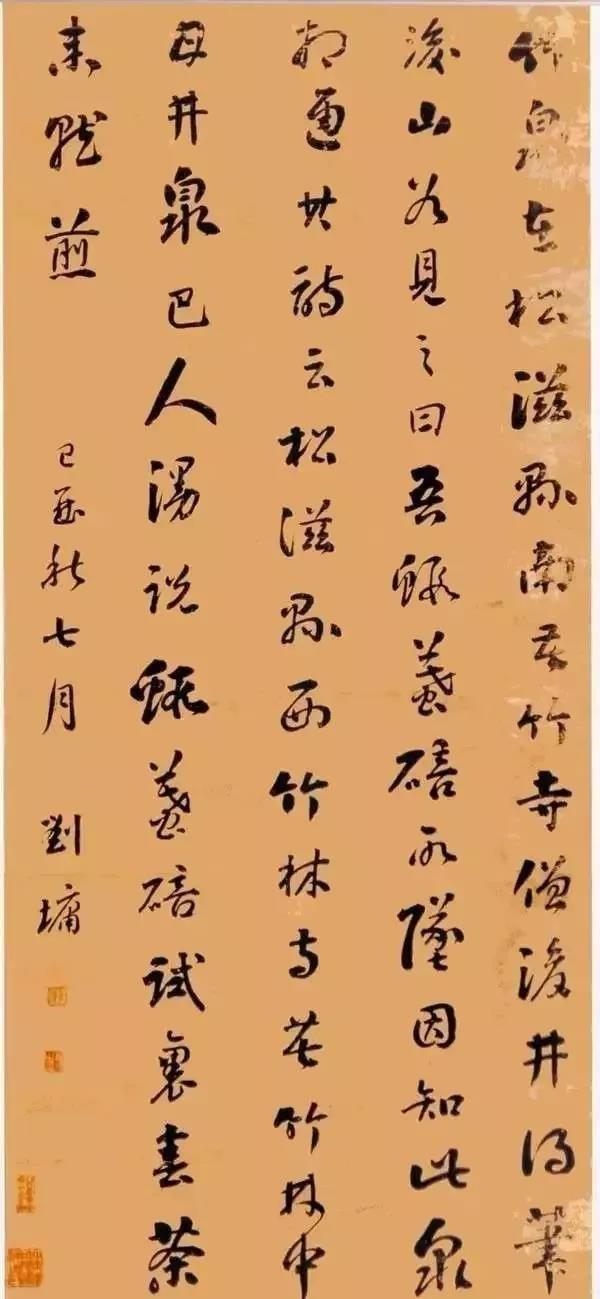 竹泉在松滋縣南苦竹寺僧浚井得筆
後山谷見之曰吾蝦蟇碚所墜因知此泉
相通其詩云松滋縣西竹林寺苦竹林中
甘井泉巴人漫說蝦蟇碚試裹春茶
來就煎 己酉秋七月 劉墉